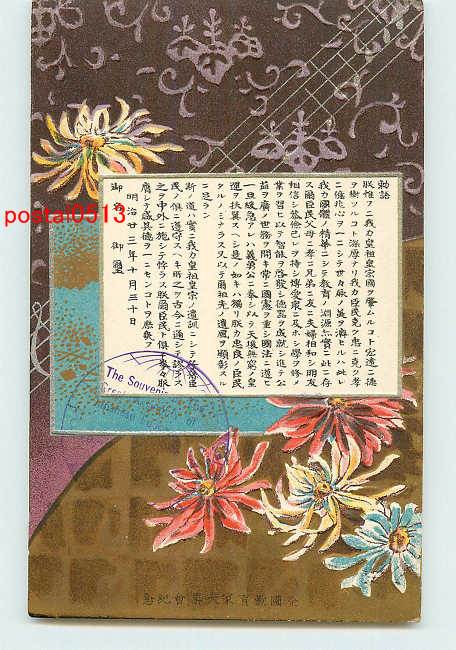 勅語
朕惟フニ我カ皇祖皇宗國ヲ肇ムルコト宏遠ニ德
ヲ樹ツルコト深厚ナリ我カ臣民克ク忠ニ克ク孝
ニ億兆心ヲ一ニシテ世々厥ノ美ヲ濟セルハ此レ
我カ國體ノ精華ニシテ教育ノ淵源亦實ニ此ニ存
ス爾臣民父母ニ孝ニ兄弟ニ友ニ夫婦相和シ朋友
相信シ恭儉己レヲ持シ博愛衆ニ及ホシ學ヲ修メ
業ヲ習ヒ以テ智能ヲ啓發シ德器ヲ成就シ進テ公
益ヲ廣メ世務ヲ開キ常ニ國憲ヲ重シ國法ニ遵ヒ
一旦緩急アレハ義勇公ニ奉シ以テ天壤無窮ノ皇
運ヲ扶翼スヘシ是ノ如キハ獨リ朕カ忠良ノ臣民
タルノミナラス又以テ爾祖先ノ遺風ヲ顯彰スル
ニ足ラン
斯ノ道ハ實ニ我カ皇祖皇宗ノ遺訓ニシテ子孫臣
民ノ俱ニ遵守スヘキ所之ヲ古今ニ通シテ謬ラス
之ヲ中外ニ施シテ悖ラス朕爾臣民ト俱ニ拳々服
膺シテ咸其德ヲ一ニセンコトヲ庶幾フ
明治廿三年十月三十日
御名 御璽
postal0513
The Souvenir
全國教育家大集會紀念